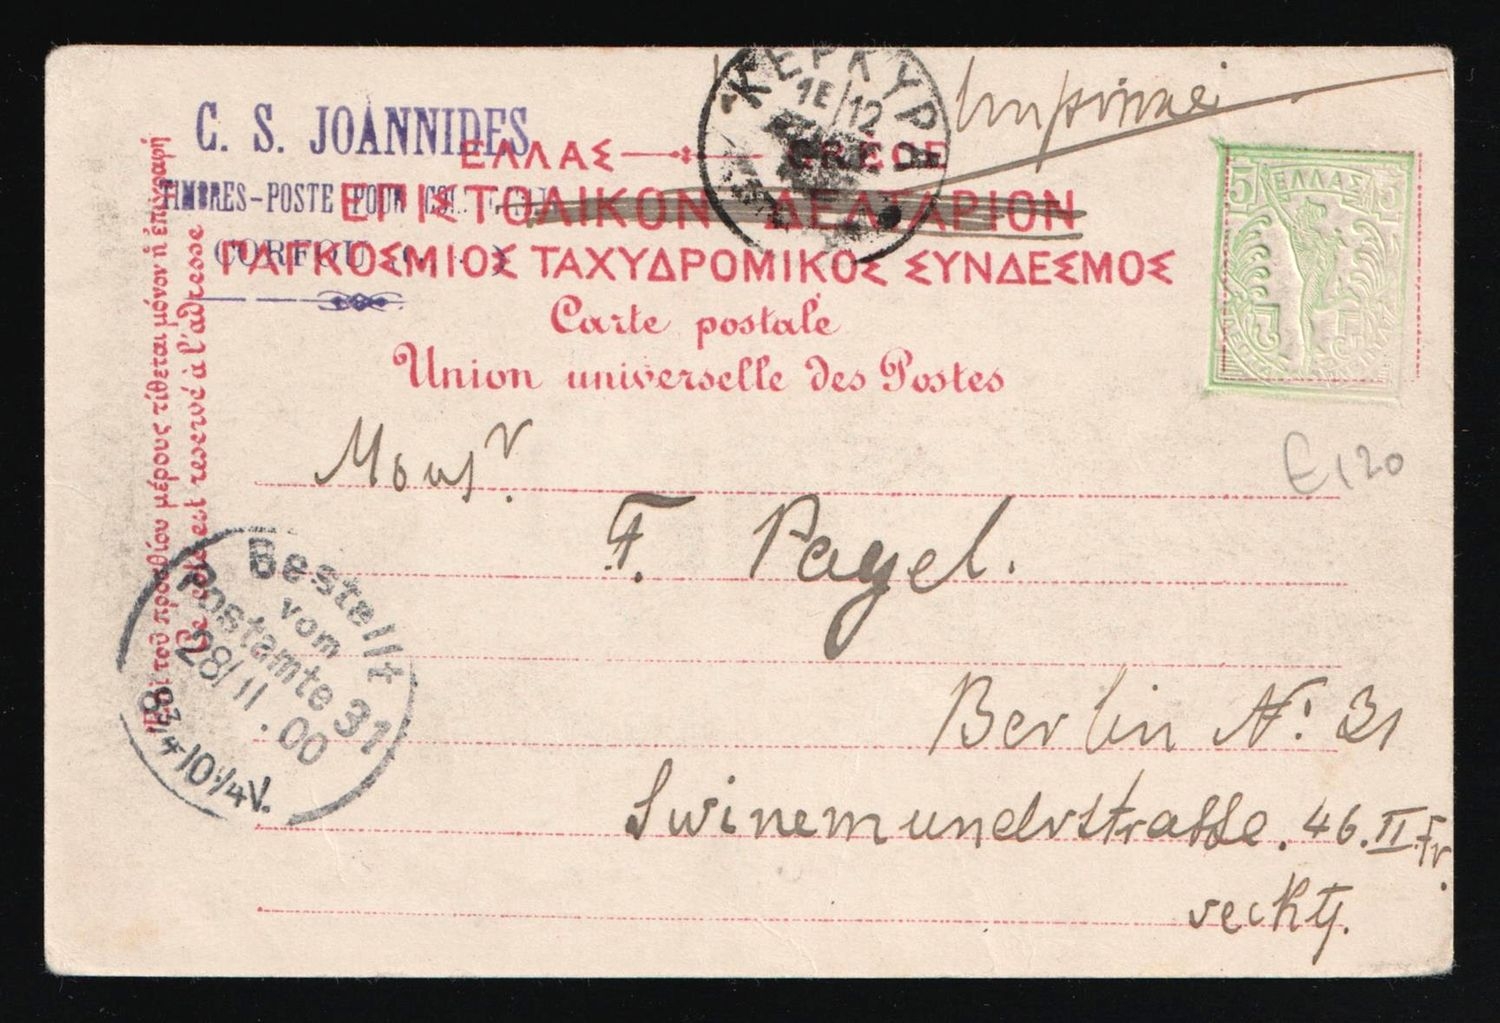 C. S. JOANNIDES
TIMBRES-POSTE POUR
CORFOU
ΚΕΡΚΥΡΑ
12
Imprimé
ΕΛΛΑΣ GRÈCE
ΕΠΙΣΤΟΛΙΚΟΝ ΔΕΛΤΑΡΙΟΝ
ΠΑΓΚΟΣΜΙΟΣ ΤΑΧΥΔΡΟΜΙΚΟΣ ΣΥΝΔΕΣΜΟΣ
Carte postale
Union universelle des Postes
5 ΕΛΛΑΣ 5
Ἐπὶ τοῦ προσθίου μέρους τίθεται μόνον ἡ ἐπιγραφή
Ce côté est reservé à l'adresse
£120
Monsr.
F. Pagel.
Berlin No: 31
Swinemunderstrasse. 46. II. Fr.
Bestellt
vom
Postamte 31
28/11.00
8 3/4-10 1/4V.